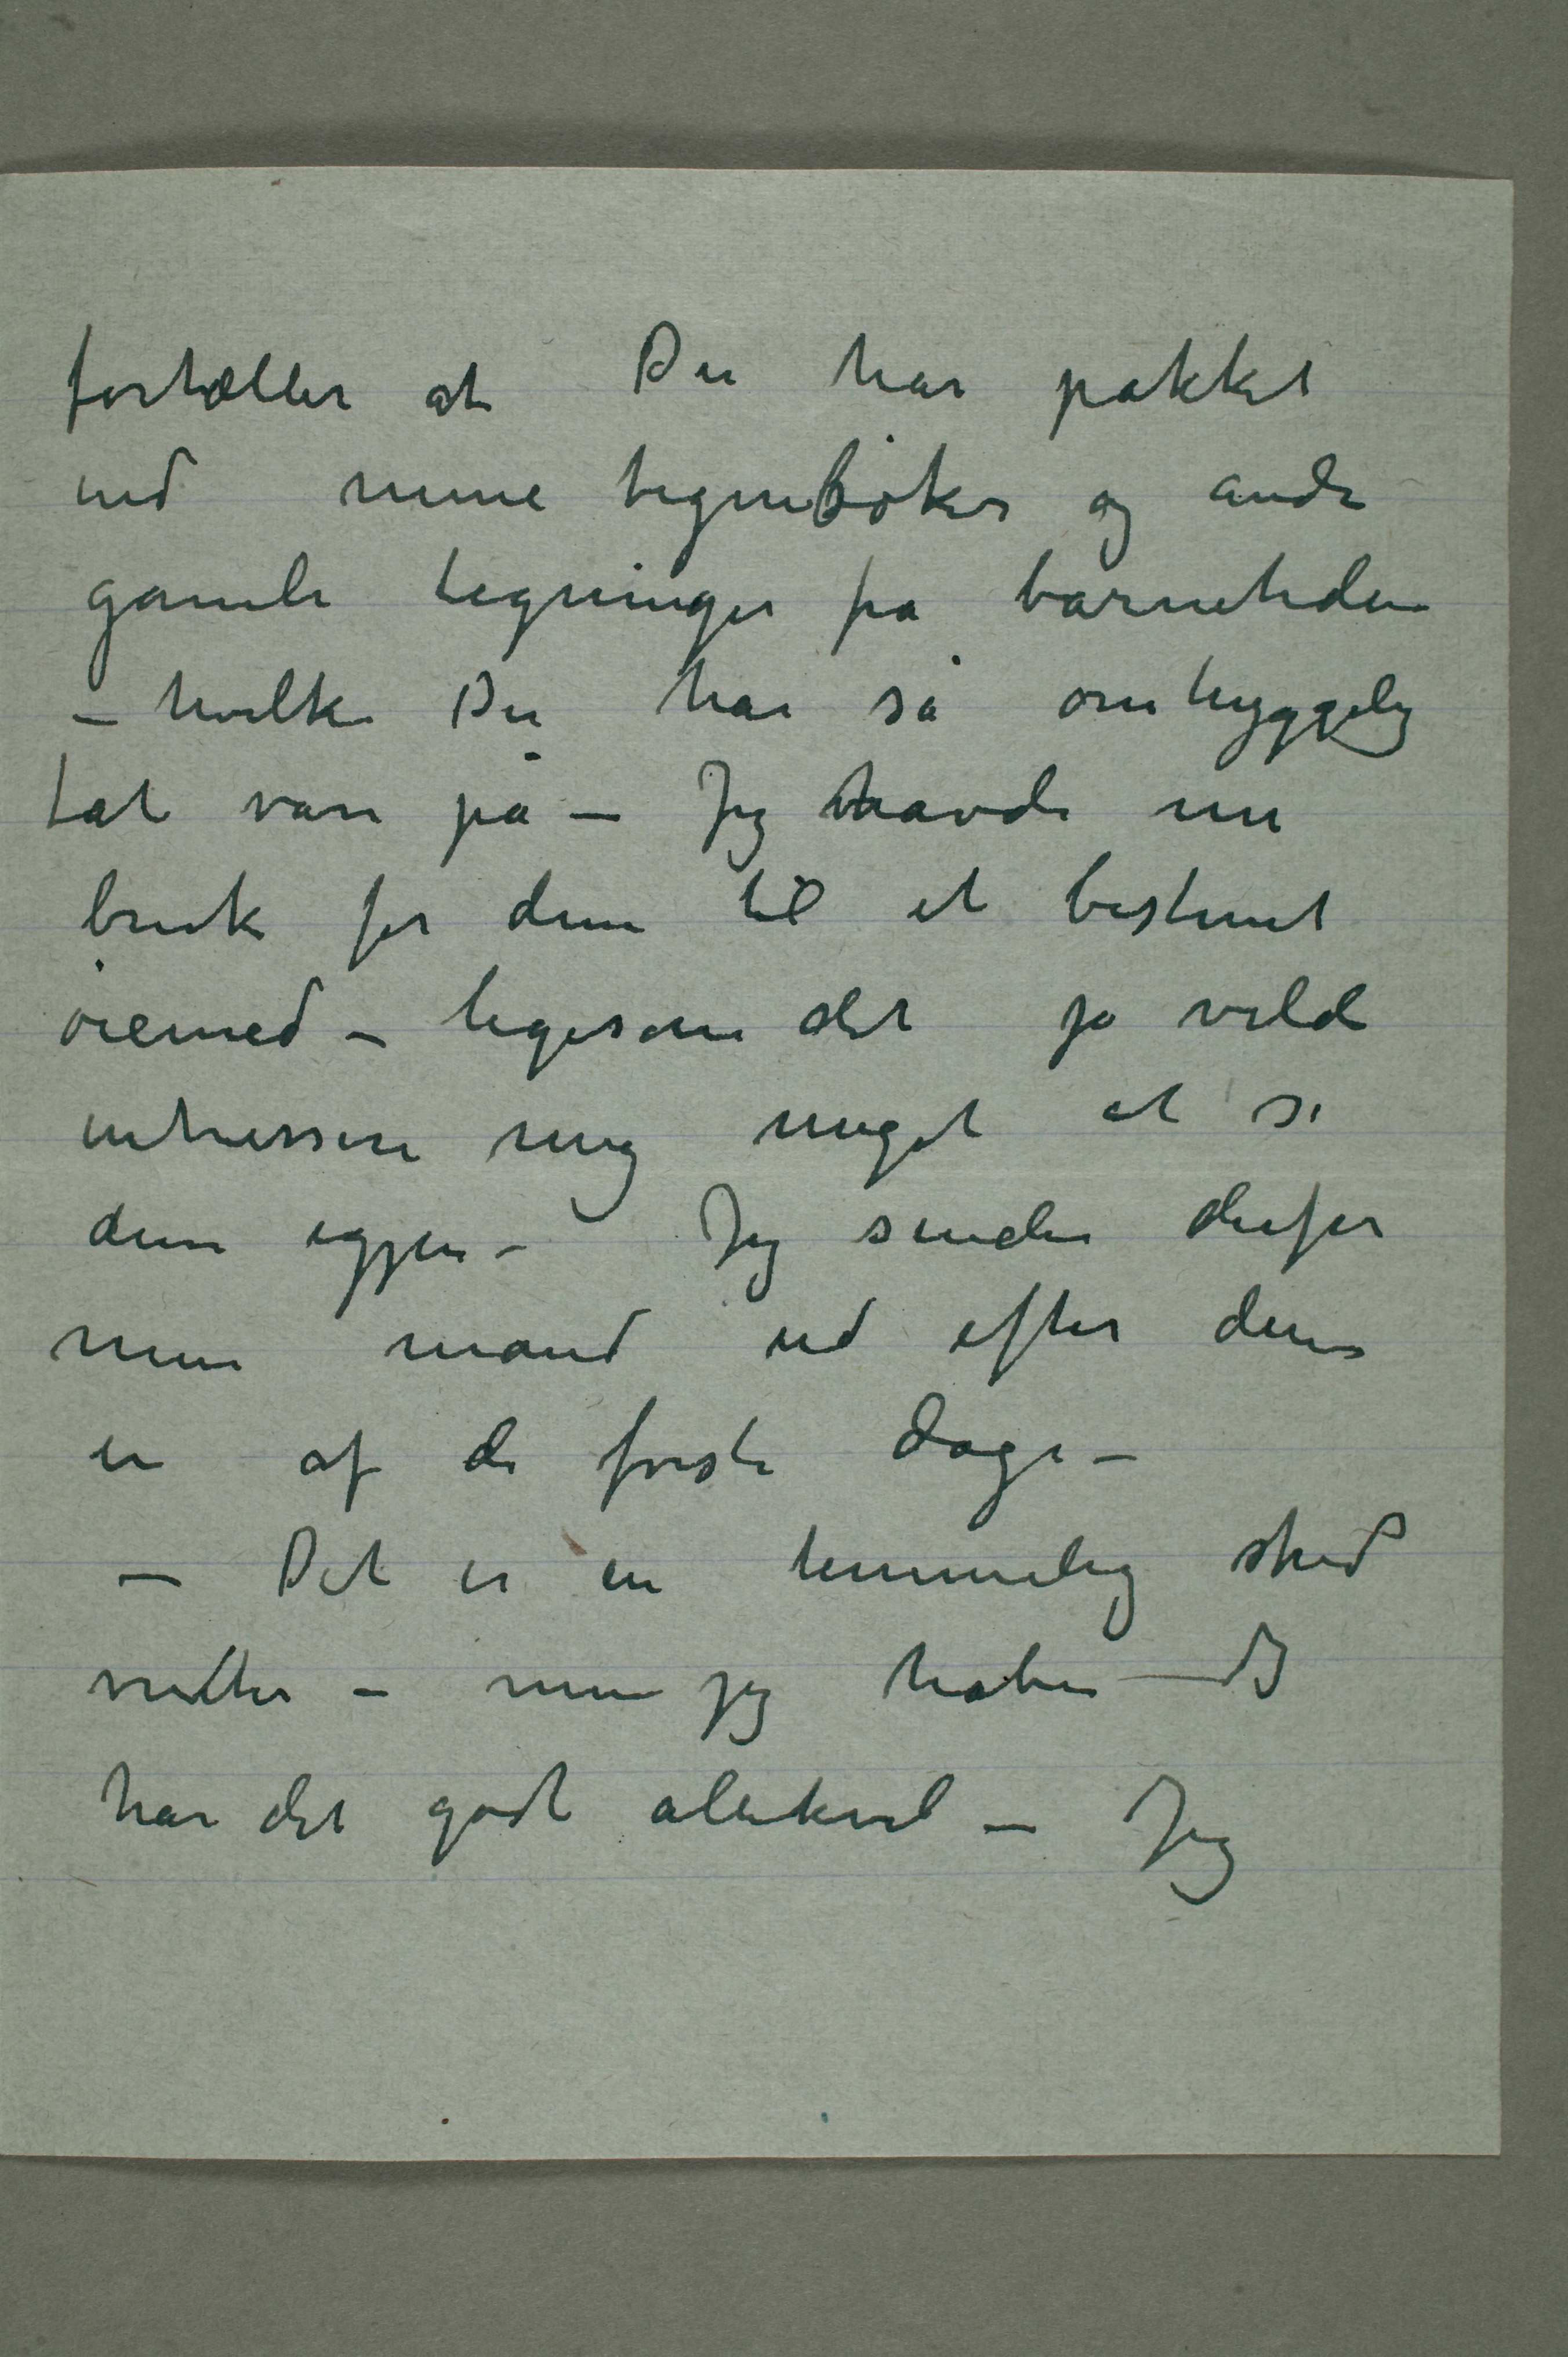 fortæller at Du har pakket
ind mine tegnebøker og andre
gamle tegninger fra barnetiden
– hvilke Du har så omhyggelig
tat vare på – Jeg havde nu
bruk for dem til et bestemt
øiemed – ligesom det jo vilde
intressere mig meget at se
dem igjen – Jeg sender derfor
min mand ud efter dem
en af de første dage –
– Det er en temmelig stred
vinter – men jeg håber – I
har det godt allikevel – Jeg